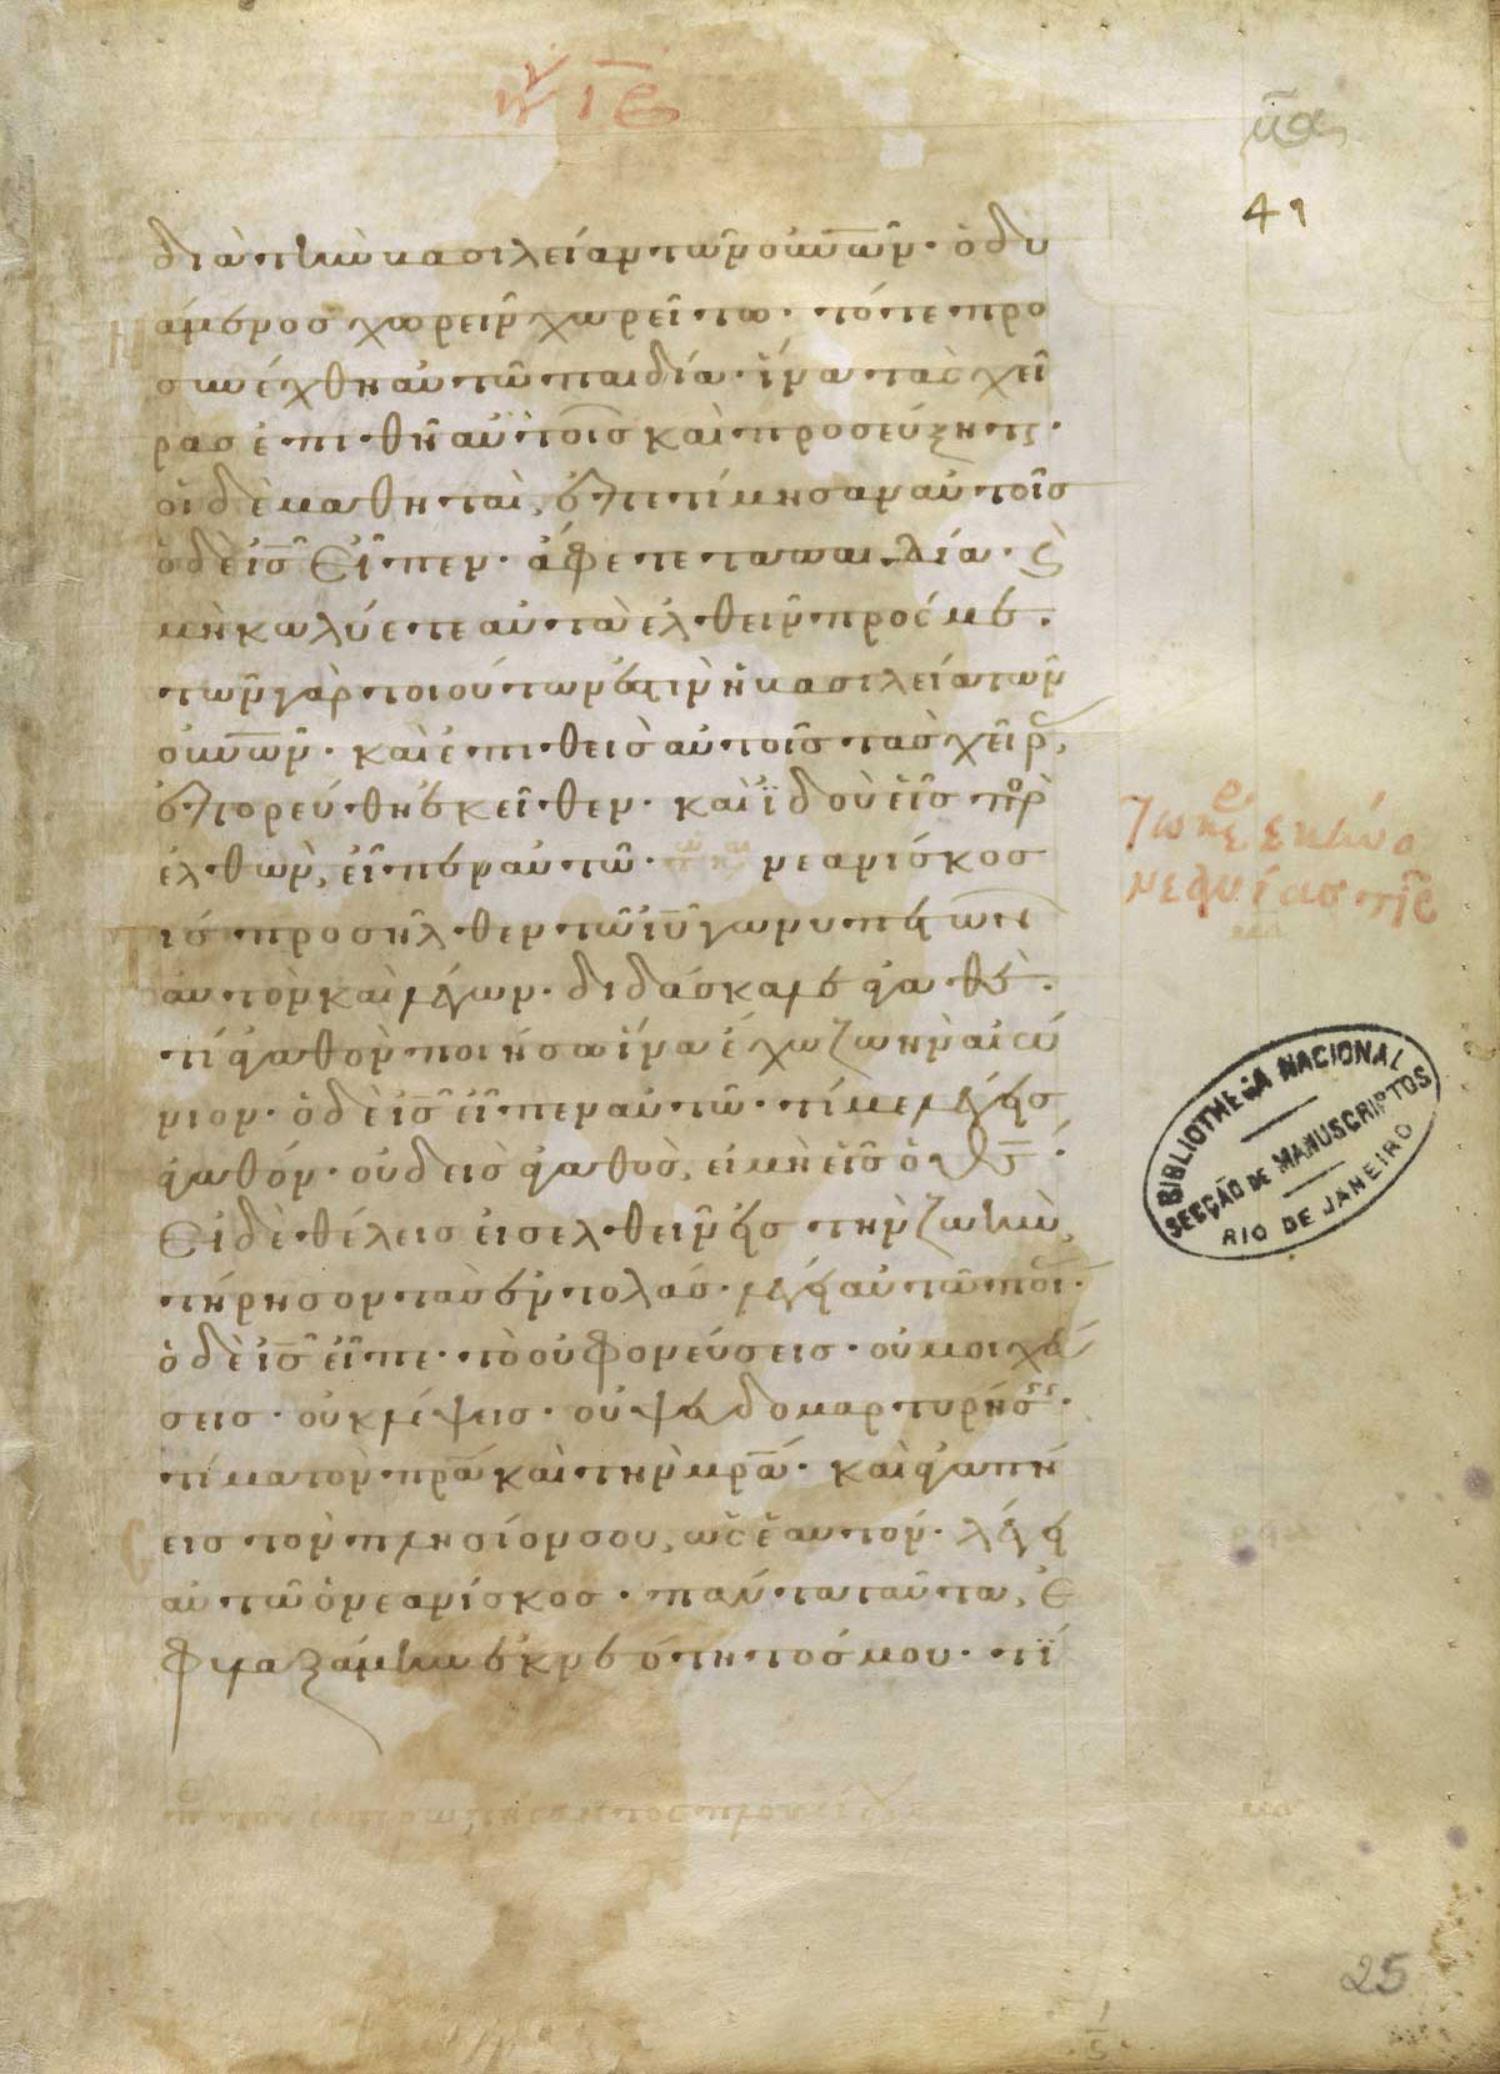 ιε
κα
41
διὰ τὴν βασιλείαν τῶν οὐνῶν· ὁ δυ
νάμενος χωρεῖν χωρεῖτω· τότε προ
σηνέχθη αὐτῶ παιδία· ἵνα τὰς χεῖ
ρας ἐπιθῆ αὐτοῖς καὶ προσεύξητ·
οἱ δὲ μαθηταὶ, ἐπετίμησαν αὐτοῖς
ὁ δὲ ἰς εἶπεν· ἄφετε τα παιδία· ϗ
μὴ κωλύετε αὐτὰ ἐλθεῖν πρός με·
τῶν γὰρ τοιούτων ἐστιν ἡ βασιλεία τῶν
οὐνῶν· καὶ ἐπιθεὶς αὐτοῖς τὰς χεῖρ,
ἐπορεύθη ἐκεῖθεν· καὶ ϊδοὺ εἷς πρ
ἐλθὼν, εἶπεν αὐτῶ· νεανίσκος
ις προσῆλθεν τῶ ιυ γωνυπετῶν
αὐτὸν καὶ λέγων· διδάσκαλε ἀγαθὲ·
τί ἀγαθὸν ποιήσω ἵνα ἔχω ζωὴν αἰώ
νιον· ὁ δὲ ις εἶπεν αὐτῶ· τί με λέγεις
ἀγαθόν· οὐδεὶς ἀγαθὸς, εἰ μὴ εἷς ὁ θς·
Εἰ δὲ θέλεις εἰσελθεῖν εἰς τὴν ζωὴν,
τήρησον τὰς ἐντολάς· λέγει αὐτῶ ποί·
ὁ δὲ ις εἶπε· τὸ οὐ φονεύσεις· οὐ μοιχεύ
σεις· οὐ κλέψεις· οὐ ψευδομαρτυρήσ·
τίμα τὸν πρα καὶ τὴν μρα· καὶ ἀγαπή
εις τὸν πλησίον σου, ὡς ἑαυτόν· λέγει
αὐτῶ ὁ νεανίσκος· πάντα ταῦτα, ἐ
φυλαξάμην ἐκ νεότητός μου· τί
BIBLIOTHECA NACIONAL
SECÇÃO DE MANUSCRIPTOS
RIO DE JANEIRO
25